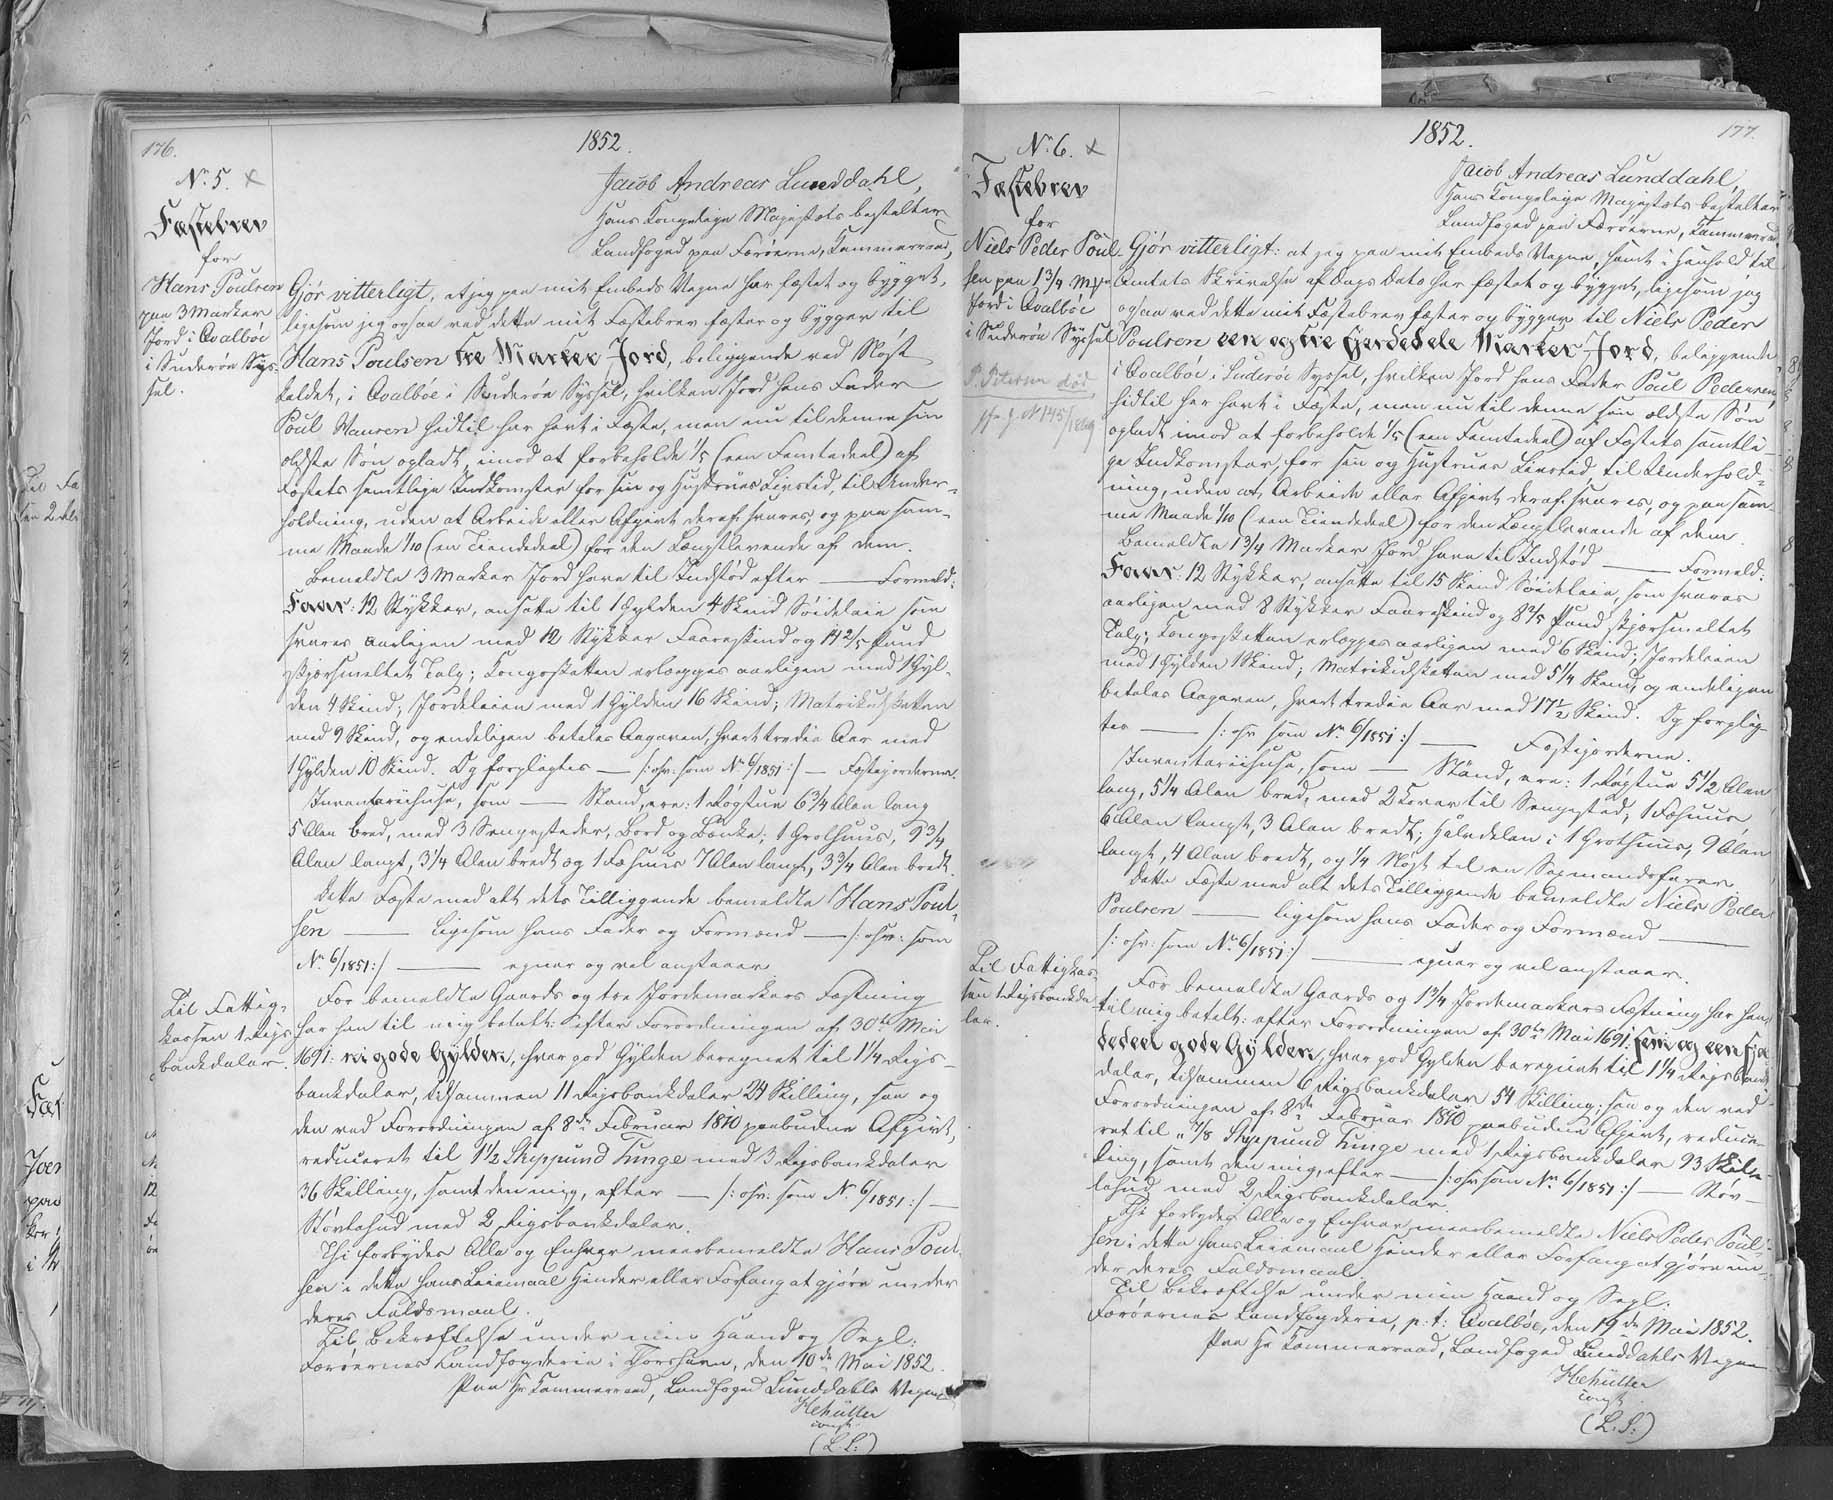 176.
1852.
No 5. x
Fæstebrev
for
Hans Poulsen
paa 3 Marker
Jord i Qvalböe
i Suderöe Sys-
sel.
Jacob Andreas Lunddahl,
Hans Kongelige Majestæts bestalter
Landfoged paa Færöerne, Kammerraad,
Gjör vitterligt, at jeg paa mit Embeds Vegne har fæstet og bygget,
ligesom jeg ogsaa ved dette mit Fæstebrev fæster og bygger til
Hans Poulsen tre Marker Jord, beliggende ved Nost
kaldet, i Qvalböe i Suderöe Syssel, hvilken Jord hans Fader
Poul Hansen hidtil har havt i Fæste, men nu til denne sin
ældste Sön opladt, imod at forbeholde 1/5 (een Femtedeel) af
Fæstets samtlige Indkomster for sin og Hustrues Livstid, til Under-
holdning, uden at Arbeide eller Afgivt deraf svares, og paa sam-
me Maade 1/10 (en Tiendedeel) for den Længstlevende af dem.
Bemeldte 3 Marker Jord have til Indstöd efter — Formeld:
Faar: 12 Stykker, ansatte til 1 Gylden 4 Skind Söideleie som
svares aarligen med 12 Stykker Faareskind og 14 2/5 Pund
skjærsmeltet Talg; Kongeskatten erlægges aarligen med 1 Gyl-
den 4 Skind; Jordeleien med 1 Gylden 16 Skind; Matrikulskatten
med 9 Skind, og endeligen betales Aagaven, hvert tredie Aar med
1 Gylden 10 Skind. Og forpligtes — /: osv: som No 6/1851 :/ — Fæstejorderne.
Inventariihuse, som — Stand, ere: 1 Rögstue 6 3/4 Alen lang
5 Alen bred, med 3 Sengesteder, Bord og Bænke; 1 Grothuus, 9 3/4
Alen langt, 3 1/4 Alen bredt og 1 Fæhuus 7 Alen langt, 3 3/4 Alen bredt.
Dette Fæste med alt dets Tilliggende bemeldte Hans Poul-
sen — ligesom hans Fader og Formænd — /: osv: som
No 6/1851 :/ — egner og vel anstaaer.
Til Fattig-
kassen 1 Rigs-
bankdaler.
For bemeldte Gaards og tre Jordemarkers Fæstning
har han til mig betalt: efter Forordningen af 30te Mai
1691: ni gode Gylden, hver god Gylden beregnet til 1 1/4 Rigs-
bankdaler, tilsammen 11 Rigsbankdaler 24 Skilling, saa og
den ved Forordningen af 8de Februar 1810 paabudne Afgivt,
reduceret til 1 1/2 Skippund Tunge med 3 Rigsbankdaler
36 Skilling, samt den mig, efter — /: osv: som No 6/1851 :/ —
Stövlehud med 2 Rigsbankdaler.
Thi forbydes Alle og Enhver meerbemeldte Hans Poul-
sen i dette hans Leiemaal Hinder eller Forfang at gjöre under
deres Faldsmaal.
Til Bekræftelse under min Haand og Segl:
Færöernes Landfogderie i Thorshavn, den 10de Mai 1852.
Paa Hr Kammerraad, Landfoged Lunddahls Vegne
HMüller
const.
(L. S:)
177.
1852.
No 6. x
Fæstebrev
for
Niels Peder Poul-
sen paa 1 3/4 Mrk
Jord i Qvalböe
i Suderöe Syssel
P. Petersen död
sfr. J. No 145/1869
Jacob Andreas Lunddahl,
Hans Kongelige Majestæts bestalter
Landfoged paa Færöerne, Kammerraad
Gjör vitterligt: at jeg paa mit Embeds Vegne, samt i Henhold til
Amtets Skrivelse af Dags Dato har fæstet og bygget, ligesom jeg
ogsaa ved dette mit Fæstebrev fæster og bygger til Niels Peder
Poulsen een og tre Fjerdedele Marker Jord, beliggende
i Qvalböe i Suderöe Syssel, hvilken Jord hans Fader Poul Pedersen,
hidtil har havt i Fæste, men nu til denne sin ældste Sön
opladt imod at forbeholde 1/5 (een Femtedeel) af Fæstets samtli-
ge Indkomster, for sin og Hustrues Livstid, til Underhold-
ning, uden at, Arbeide eller Afgivt deraf svares, og paa sam-
me Maade 1/10 (een Tiendedeel) for den Længstlevende af dem.
Bemeldte 1 3/4 Marker Jord have til Indstöd — Formeld:
Faar: 12 Stykker, ansatte til 15 Skind Söideleie, som svares
aarligen med 8 Stykker Faareskind og 8 2/5 Pund skjærsmeltet
Talg; Kongeskatten erlægges aarligen med 6 Skind; Jordeleien
med 1 Gylden 1 Skind; Matrikulskatten med 5 1/4 Skind, og endeligen
betales Aagaven, hvert tredie Aar med 17 1/2 Skind. Og forplig-
tes — /: osv som No 6/1851 :/ — Fæstejorderne.
Inventariihuse, som — Stand, ere: 1 Rögstue 5 1/2 Alen
lang, 5 1/4 Alen bred, med 2 Kover til Sengested, 1 Fæhuus
6 Alen langt, 3 Alen bredt; Halvdelen i 1 Grothuus, 9 Alen
langt, 4 Alen bredt, og 1/4 Nöst til en Sexmandsfarer
Dette Fæste med alt dets Tilliggende bemeldte Niels Peder
Poulsen — ligesom hans Fader og Formænd —
/: osv: som No 6/1851 :/ — egner og vel anstaaer.
Til Fattigkas-
sen 1 Rigsbankda-
ler.
For bemeldte Gaards og 1 3/4 Jordemarkers Fæstning har han
til mig betalt: efter Forordningen af 30te Mai 1691: fem og een Fjer-
dedeel gode Gylden, hver god Gylden beregnet til 1 1/4 Rigsbank-
daler, tilsammen 6 Rigsbankdaler 54 Skilling; saa og den ved
Forordningen af 8de Februar 1810 paabudne Afgivt, reduce-
ret til „ 7/8 Skippund Tunge med 1 Rigsbankdaler 93 Skil-
ling, samt den mig, efter — /: osv som No 6/1851 :/ — Stöv-
lehud med 2 Rigsbankdaler.
Thi forbydes Alle og Enhver meerbemeldte Niels Peder Poul-
sen i dette hans Leiemaal Hinder eller Forfang at gjöre un-
der deres Faldsmaal.
Til Bekræftelse under min Haand og Segl.
Færöernes Landfogderie, p. t: Qvalböe, den 19de Mai 1852.
Paa Hr Kammerraad, Landfoged Lunddahls Vegne
HMüller
const.
(L. S:)